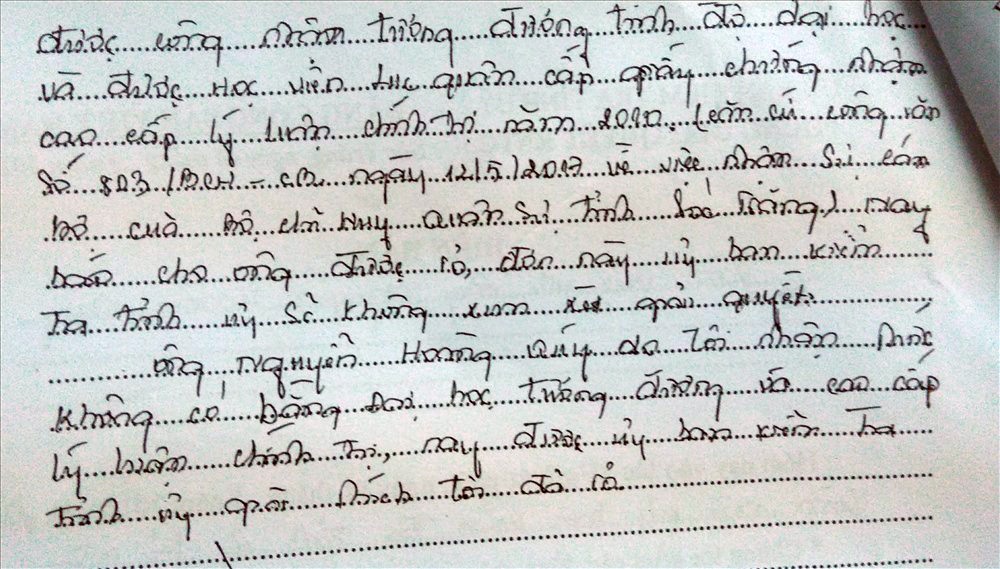 được công nhận tương đương trình độ đại học
và được Học viện lục quân cấp giấy chứng nhận
cao cấp lý luận chính trị năm 2010. (căn cứ công văn
số 803/BCH-CB ngày 12/5/2017 về việc nhân sự cán
bộ của Bộ chỉ huy quân sự tỉnh Sóc Trăng) nay
báo cho ông được rõ, đơn này ủy ban kiểm
tra tỉnh ủy sẽ không xem xét giải quyết.
ông Nguyễn Hoàng Quý do tôi nhận thức
không có bằng Đại học tương đương và cao cấp
lý luận chính trị, nay được ủy ban kiểm tra
tỉnh ủy giải thích tôi đã rõ